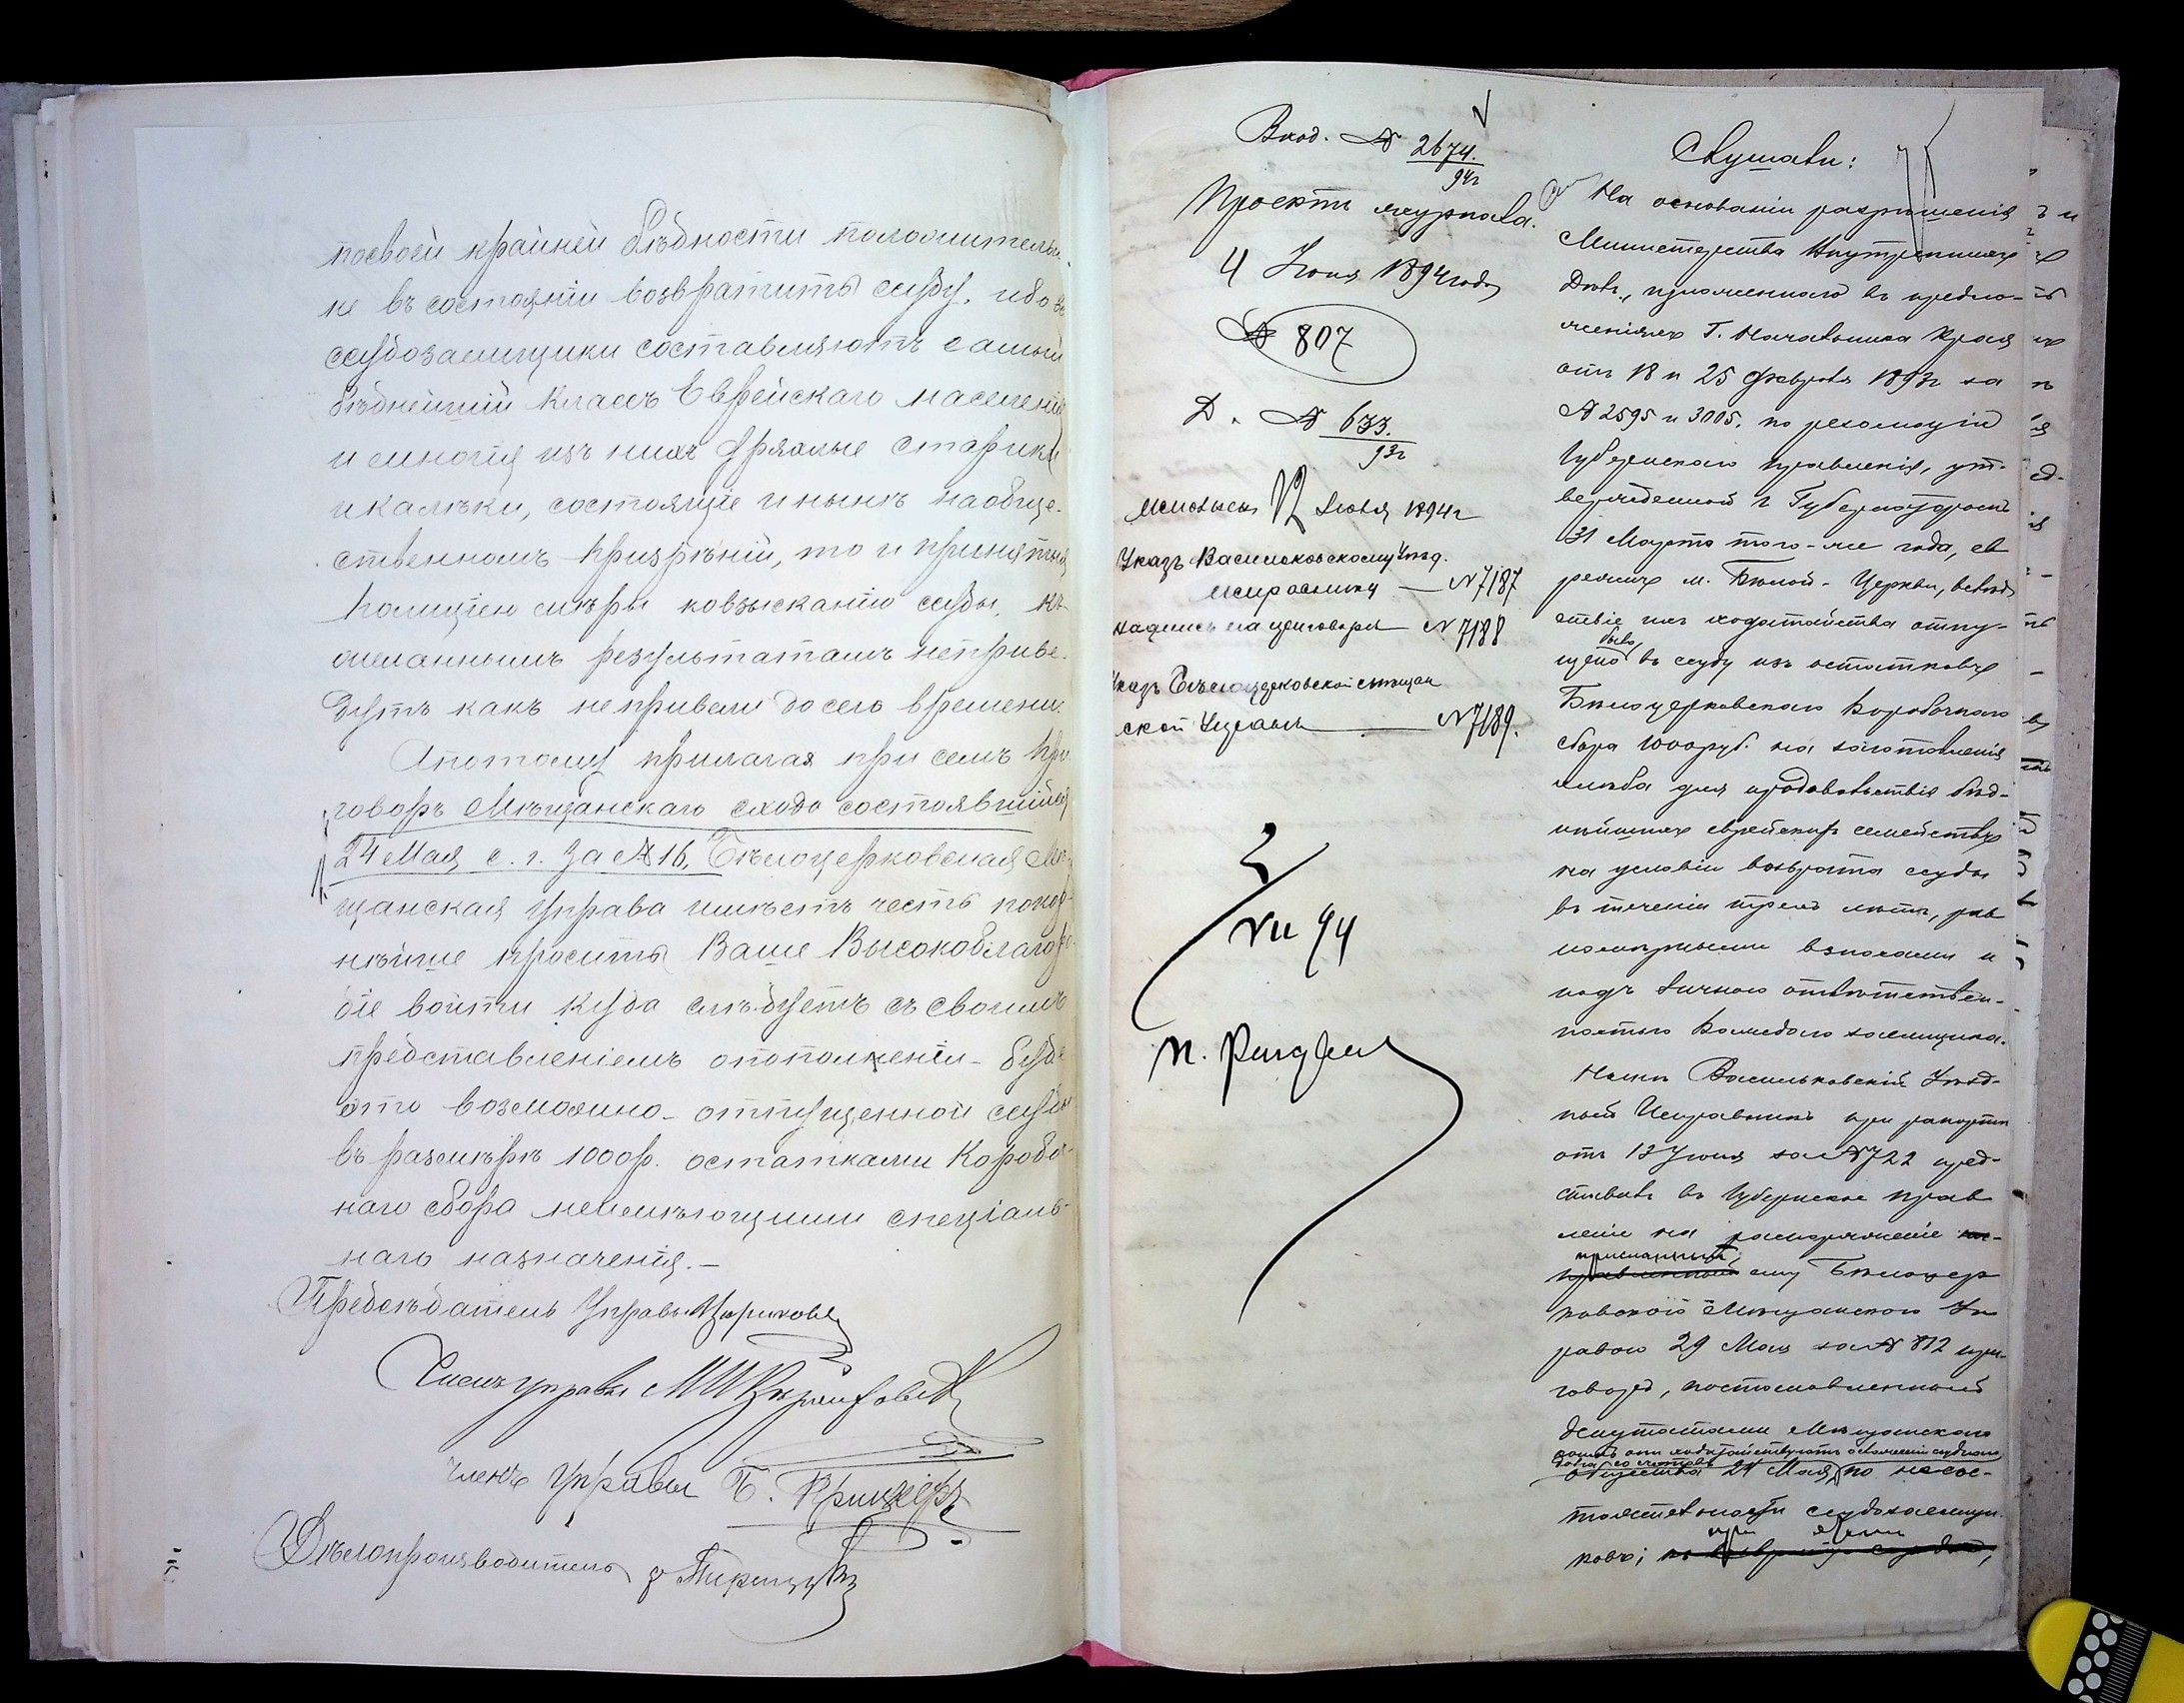 посвоей крайней бѣдности положительн
не въ состояніи возвратить ссуду, ибо
ссудозаемщики составляютъ самый
бѣднейшій классъ Еврейскаго населенія
и многія изъ нихъ дряхлые старики
и калѣки, состоящіе и нынѣ на обще-
ственномъ призрѣніи, то и принятыя
полиціею мѣры ко взысканію ссуды, къ
желаннымъ результатамъ неприве-
дутъ какъ непривели до сего времени.
А потому прилагая при семъ при-
говоръ Мѣщанскаго схода состоявшійся
24 Мая с. г. за № 16, Бѣлоцерковская Мѣ-
щанская Управа имѣетъ честь покор-
нѣйше просить Ваше Высокоблагоро-
діе войти куда слѣдуетъ съ своимъ
представленіемъ о пополненіи - буде
это возможно - отпущенной ссуды
въ размѣрѣ 1000 р. остатками Коробоч-
наго сбора неимѣющими спеціаль-
наго назначенія. —
Предсѣдатель Управы
Членъ управы
Членъ Управы Б.
Дѣлопроизводитель
Вход. № 2674.
94 г
Проектъ журнала.
4 Іюля 1894 года
№ 807
Д. № 633.
93 г
Исполнен 12 Іюля 1894 г
Указъ Васильковскому Уѣзд.
исправнику — № 7187
надпись на приговорѣ № 7188
Указъ Бѣлоцерковской мѣщан
ской Управѣ — № 7189.
2
VII 94
Слушали:
На основаніи разрѣшенія
Министерства Внутреннихъ
Дѣлъ, изложеннаго въ предло-
женіяхъ Г. Начальника Края
отъ 18 и 25 Февраля 1893 г за
№ 2595 и 3005, по резолюціи
Губернскаго правленія, ут-
вержденной г Губернаторомъ
31 Марта того-же года, ев
реямъ м. Бѣлой-Церкви, вслѣд
ствіе ихъ ходатайства отпу-
было
щено въ ссуду изъ остатковъ
Бѣлоцерковскаго Коробочнаго
сбора 1000 руб. на заготовленія
хлѣба для продовольствія бѣд-
нѣйшихъ еврейскихъ семействъ
на условіи возврата ссуды
въ теченіи трехъ лѣтъ, рав
номѣрными взносами и
подъ личною отвѣтствен-
ностью каждаго заемщика.
Нынѣ Васильковскій Уѣзд-
ный Исправникъ при рапортѣ
отъ 13 Іюня за № 722 пред-
ставилъ въ Губернское прав
леніе на распоряженіе
присланный
ему Бѣлоцер
ковскою Мѣщанскою Уп
равою 29 Мая за № 812 при-
говоръ, постановленный
депутатами Мѣщанскаго
общества 24 Мая, по несос-
тоятельности ссудозаемщи
ковъ;